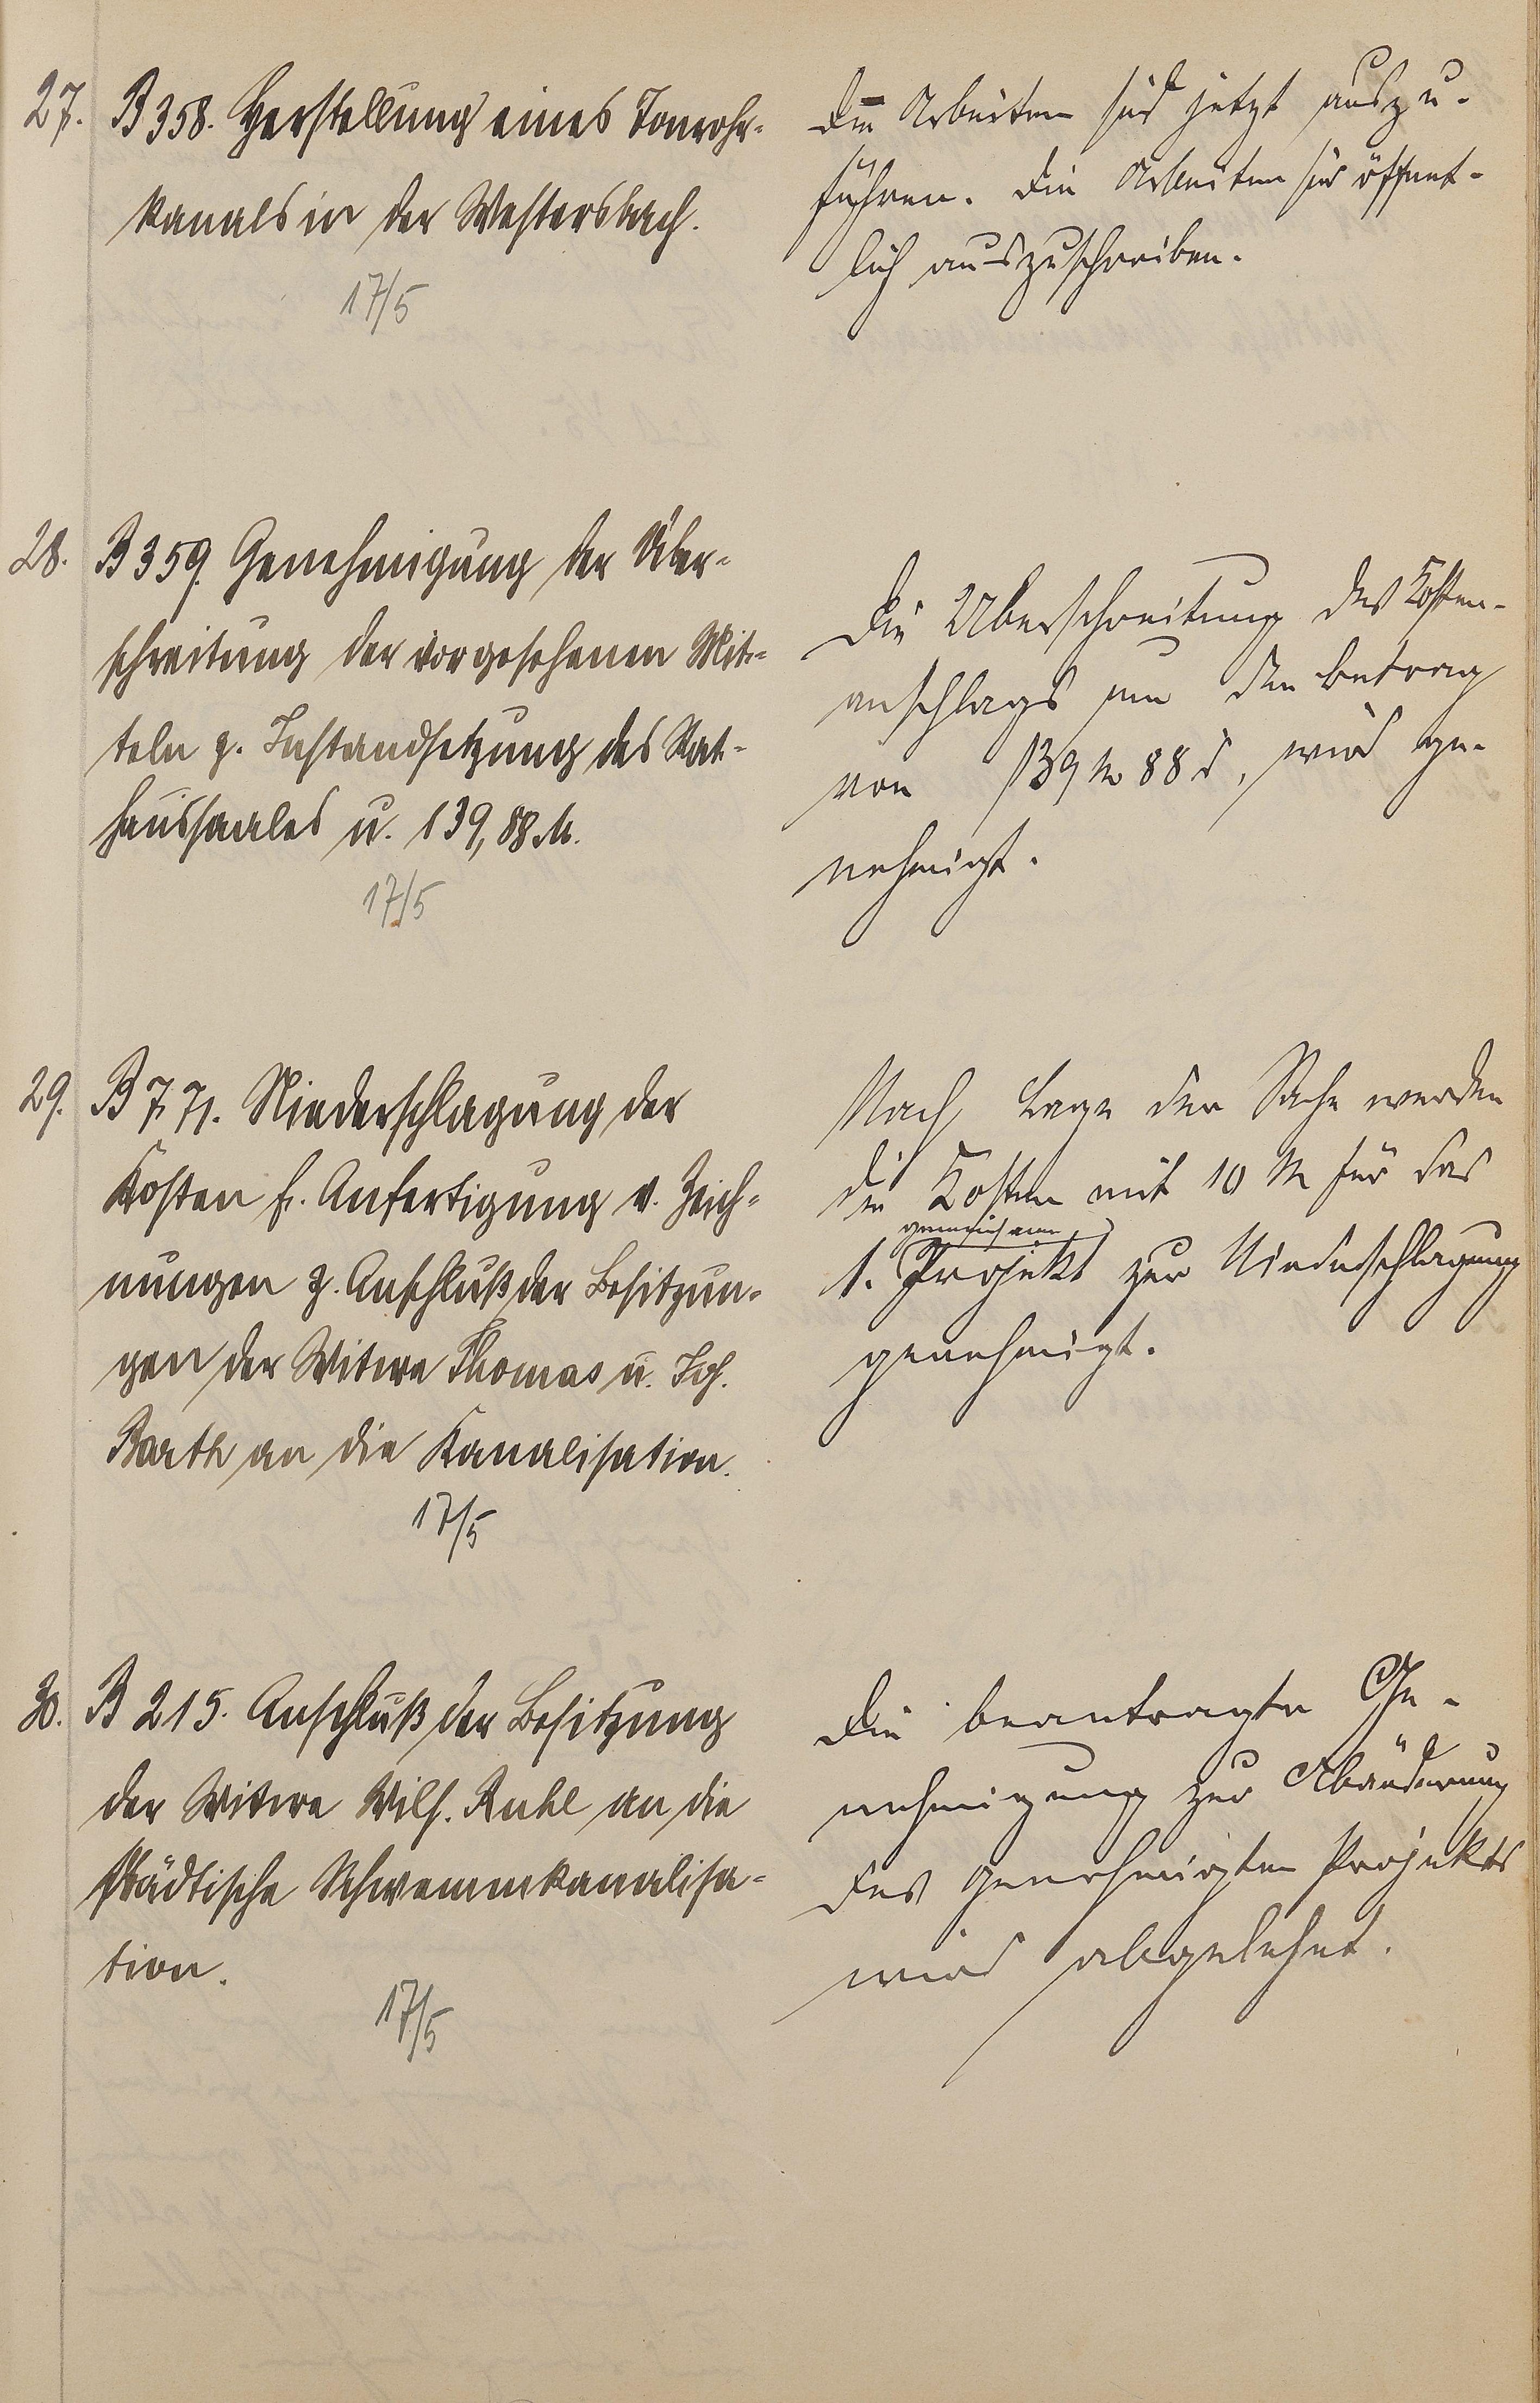 27. B 358. Herstellung eines Tonrohr-
kanals in der Westersbach.
17/5
Die Arbeiten sind jetzt auszu-
führen. Die Arbeiten sind öffent-
lich auszuschreiben.
28. B 359. Genehmigung der Über-
schreitung der vorgesehenen Mit-
teln z. Instandsetzung des Rat-
haussaales u. 139,88 M.
17/5
Die Überschreitung des Kosten-
anschlags um den Betrag
von 139 M 88 d, wird ge-
nehmigt.
29. B 771. Niederschlagung der
Kosten f. Anfertigung v. Zeich-
nungen z. Anschluß der Besitzun-
gen der Witwe Thomas u. Joh.
Barth an die Kanalisation.
17/5
Nach Lage der Sache werden
die Kosten mit 10 M für das
gemeinsame
1. Projekt zur Niederschlagung
genehmigt.
30. B 215. Anschluß der Besitzung
der Witwe Wilh. Ruhl an die
städtische Schwemmkanalisa-
tion.
17/5
Die beantragte Ge-
nehmigung zur Abänderung
des genehmigten Projekts
wird abgelehnt.